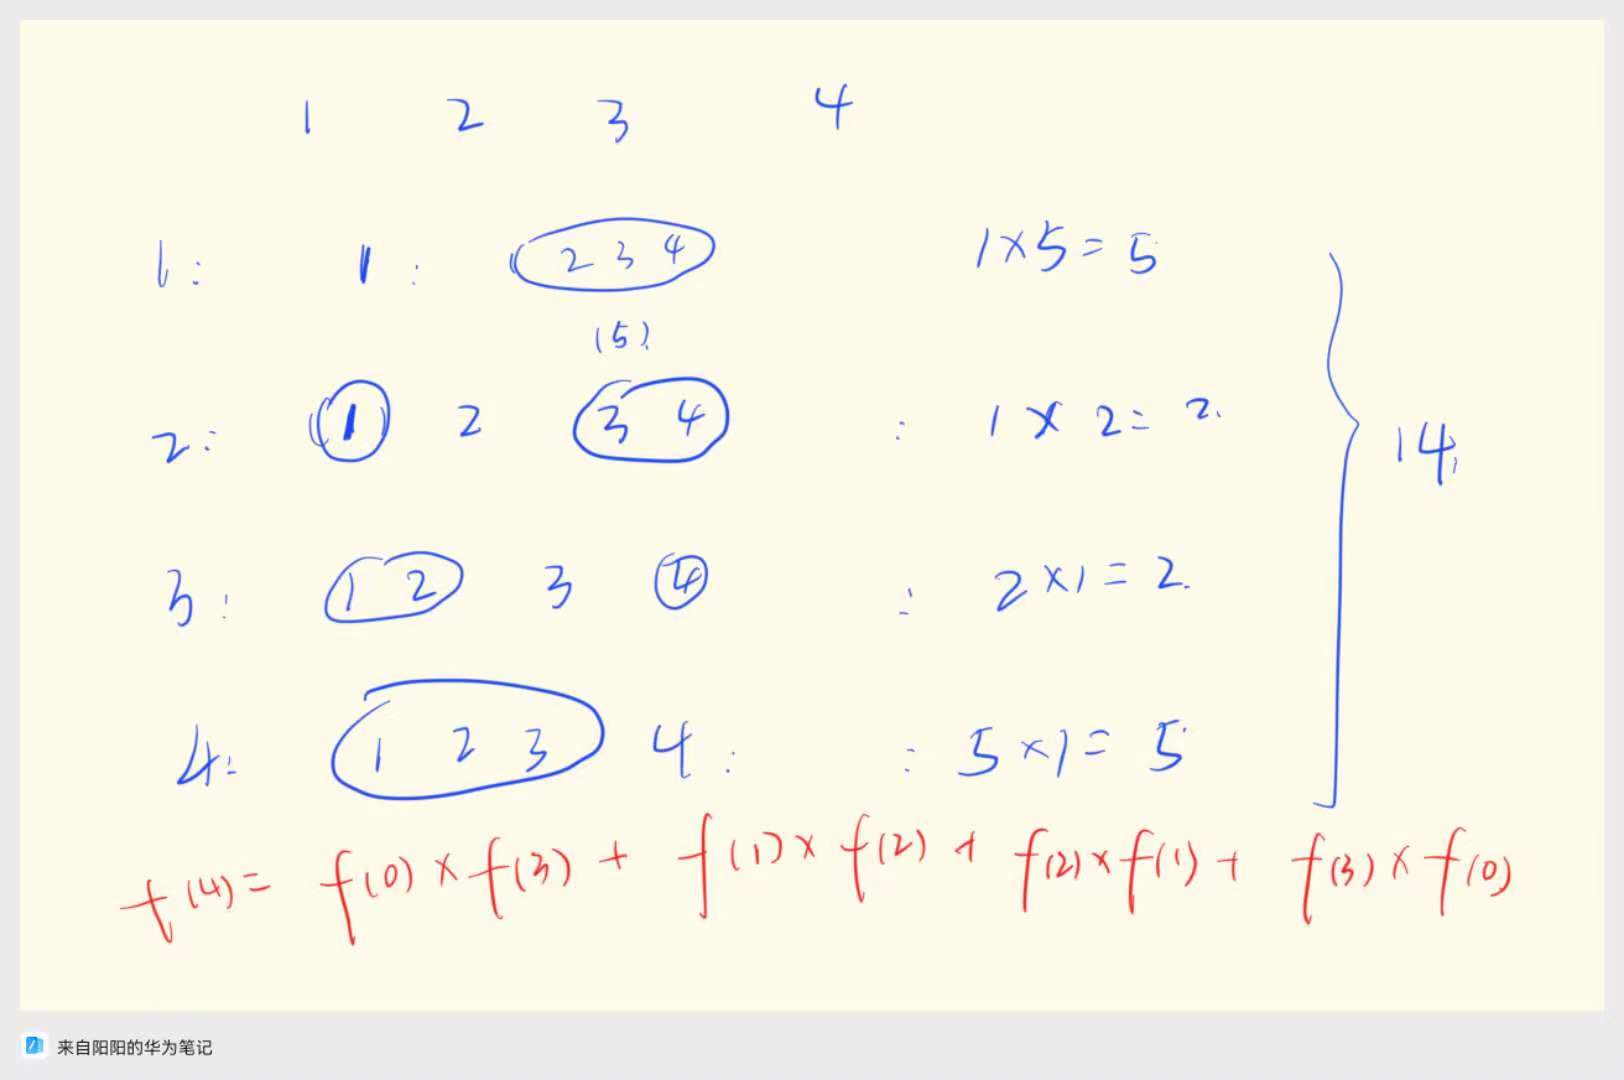 1 2 3 4
1: 1: 2 3 4 1×5=5
(5)
2: 1 2 3 4 : 1×2=2.
14
3: 1 2 3 4 : 2×1=2.
4: 1 2 3 4: : 5×1=5
f(4)= f(0)×f(3)+ f(1)×f(2)+ f(2)×f(1)+ f(3)×f(0)
来自阳阳的华为笔记